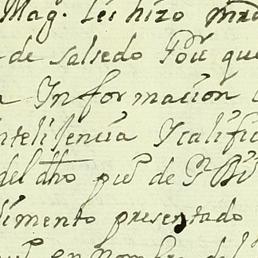 Mag. les hizo
de salsedo Por que
Informacion
ntelisencia Icalific
del dho pu.º de
limento presentado
en nombre del